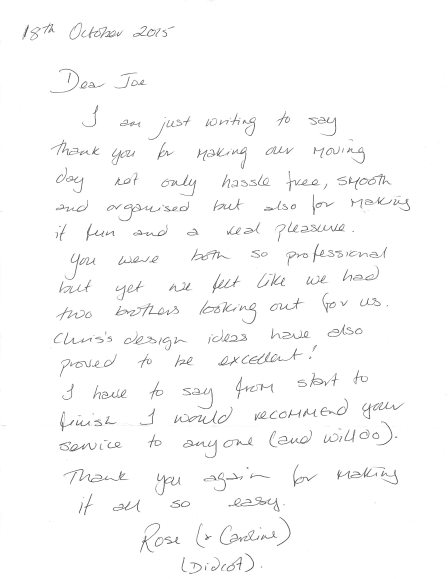 18th October 2015
Dear Joe
I am just writing to say
thank you for making our moving
day not only hassle free, smooth
and organised but also for making
it fun and a real pleasure.
You were both so professional
but yet we felt like we had
two brothers looking out for us.
Chris's design ideas have also
proved to be excellent!
I have to say from start to
finish I would recommend your
service to anyone (and will do).
Thank you again for making
it all so easy.
Rose (& Caroline)
(Didcot).